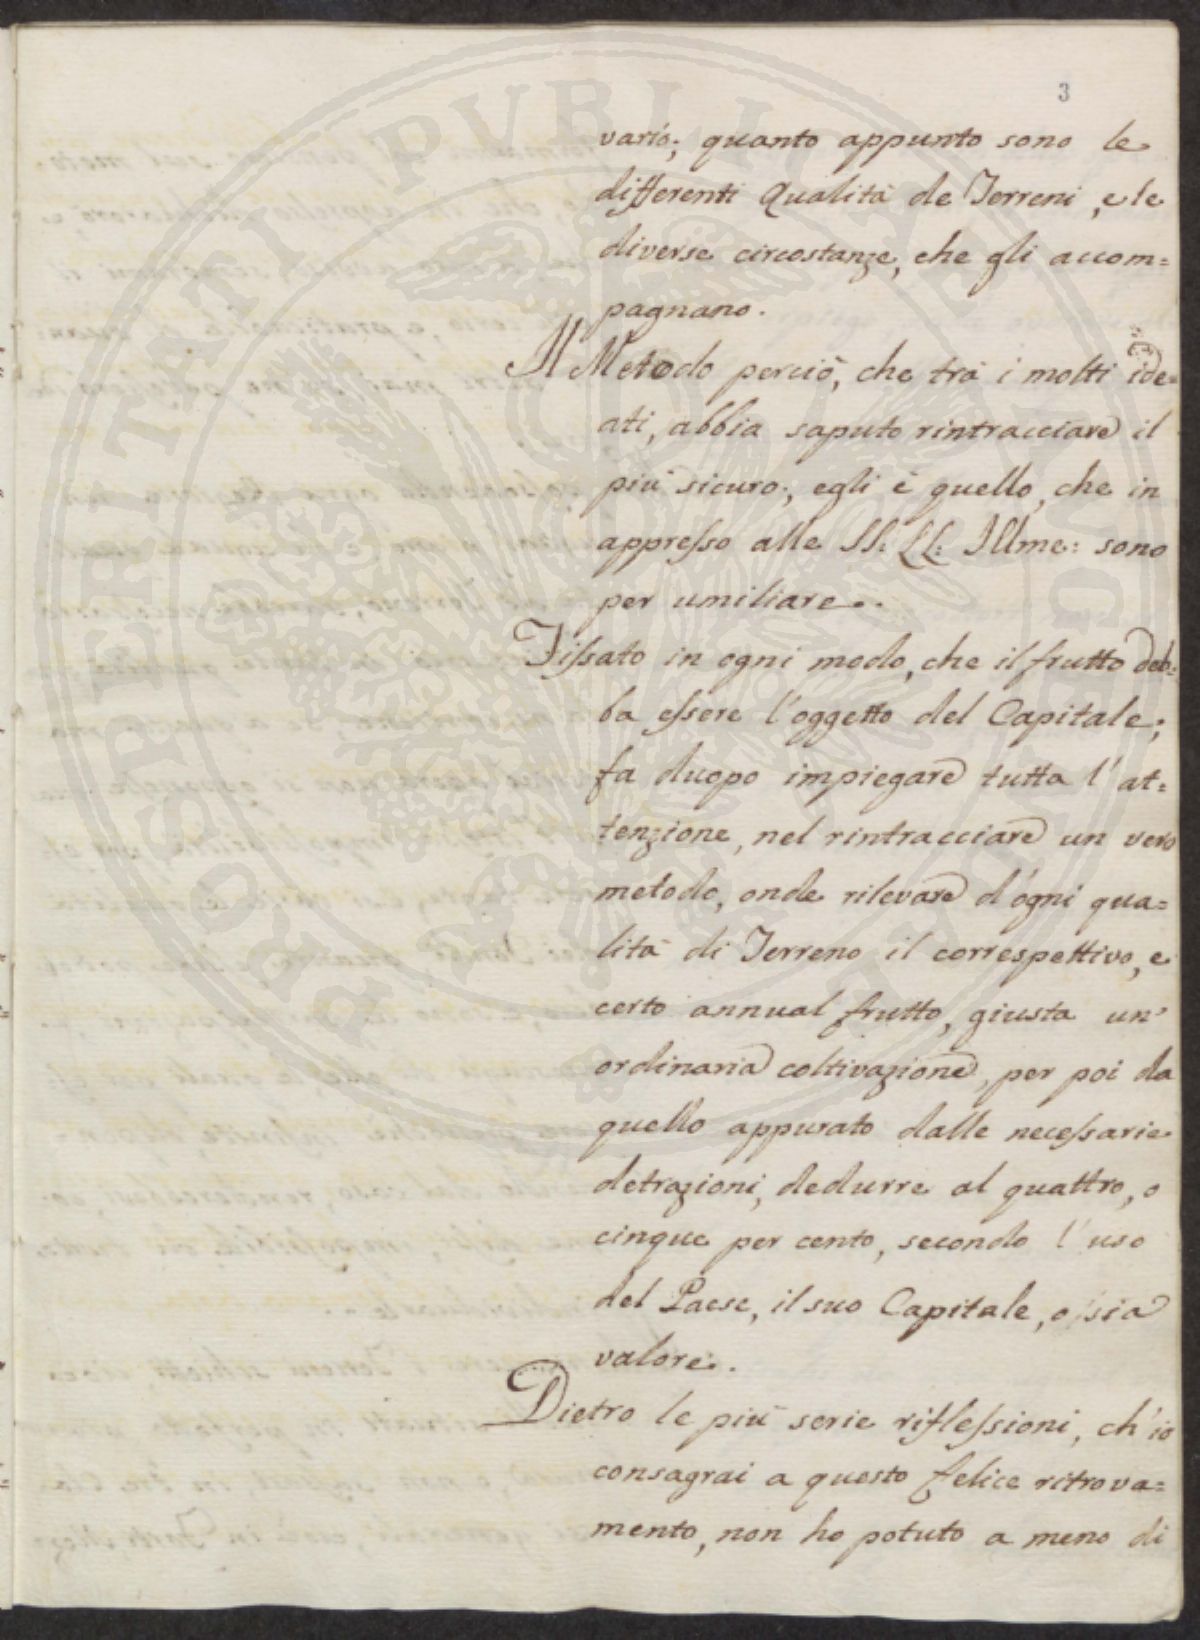 3
PROSPERITATI PVBLICAE AVGENDAE
varió; quanto appunto sono le
differenti Qualità de Terreni, e le
diverse circostanze, che gli accom=
pagnano.
Il Metodo perciò, che trà i molti ide=
ati, abbia saputo rintracciare il
più sicuro; egli è quello, che in
appresso alle SS: LL: Illme: sono
per umiliare.
Fissato in ogni modo, che il frutto deb=
ba essere l'oggetto del Capitale;
fa duopo impiegare tutta l'at=
tenzione, nel rintracciare un vero
metodo, onde rilevare d'ogni qua=
lità di Terreno il correspettivo, e
certo annual frutto, giusta un'
ordinaria coltivazione, per poi da
quello appurato dalle necessarie
detrazioni, dedurre al quattro, o
cinque per cento, secondo l'uso
del Paese, il suo Capitale, ossia
valore.
Dietro le più serie riflessioni, ch'io
consagrai a questo felice ritrova=
mento, non ho potuto a meno di